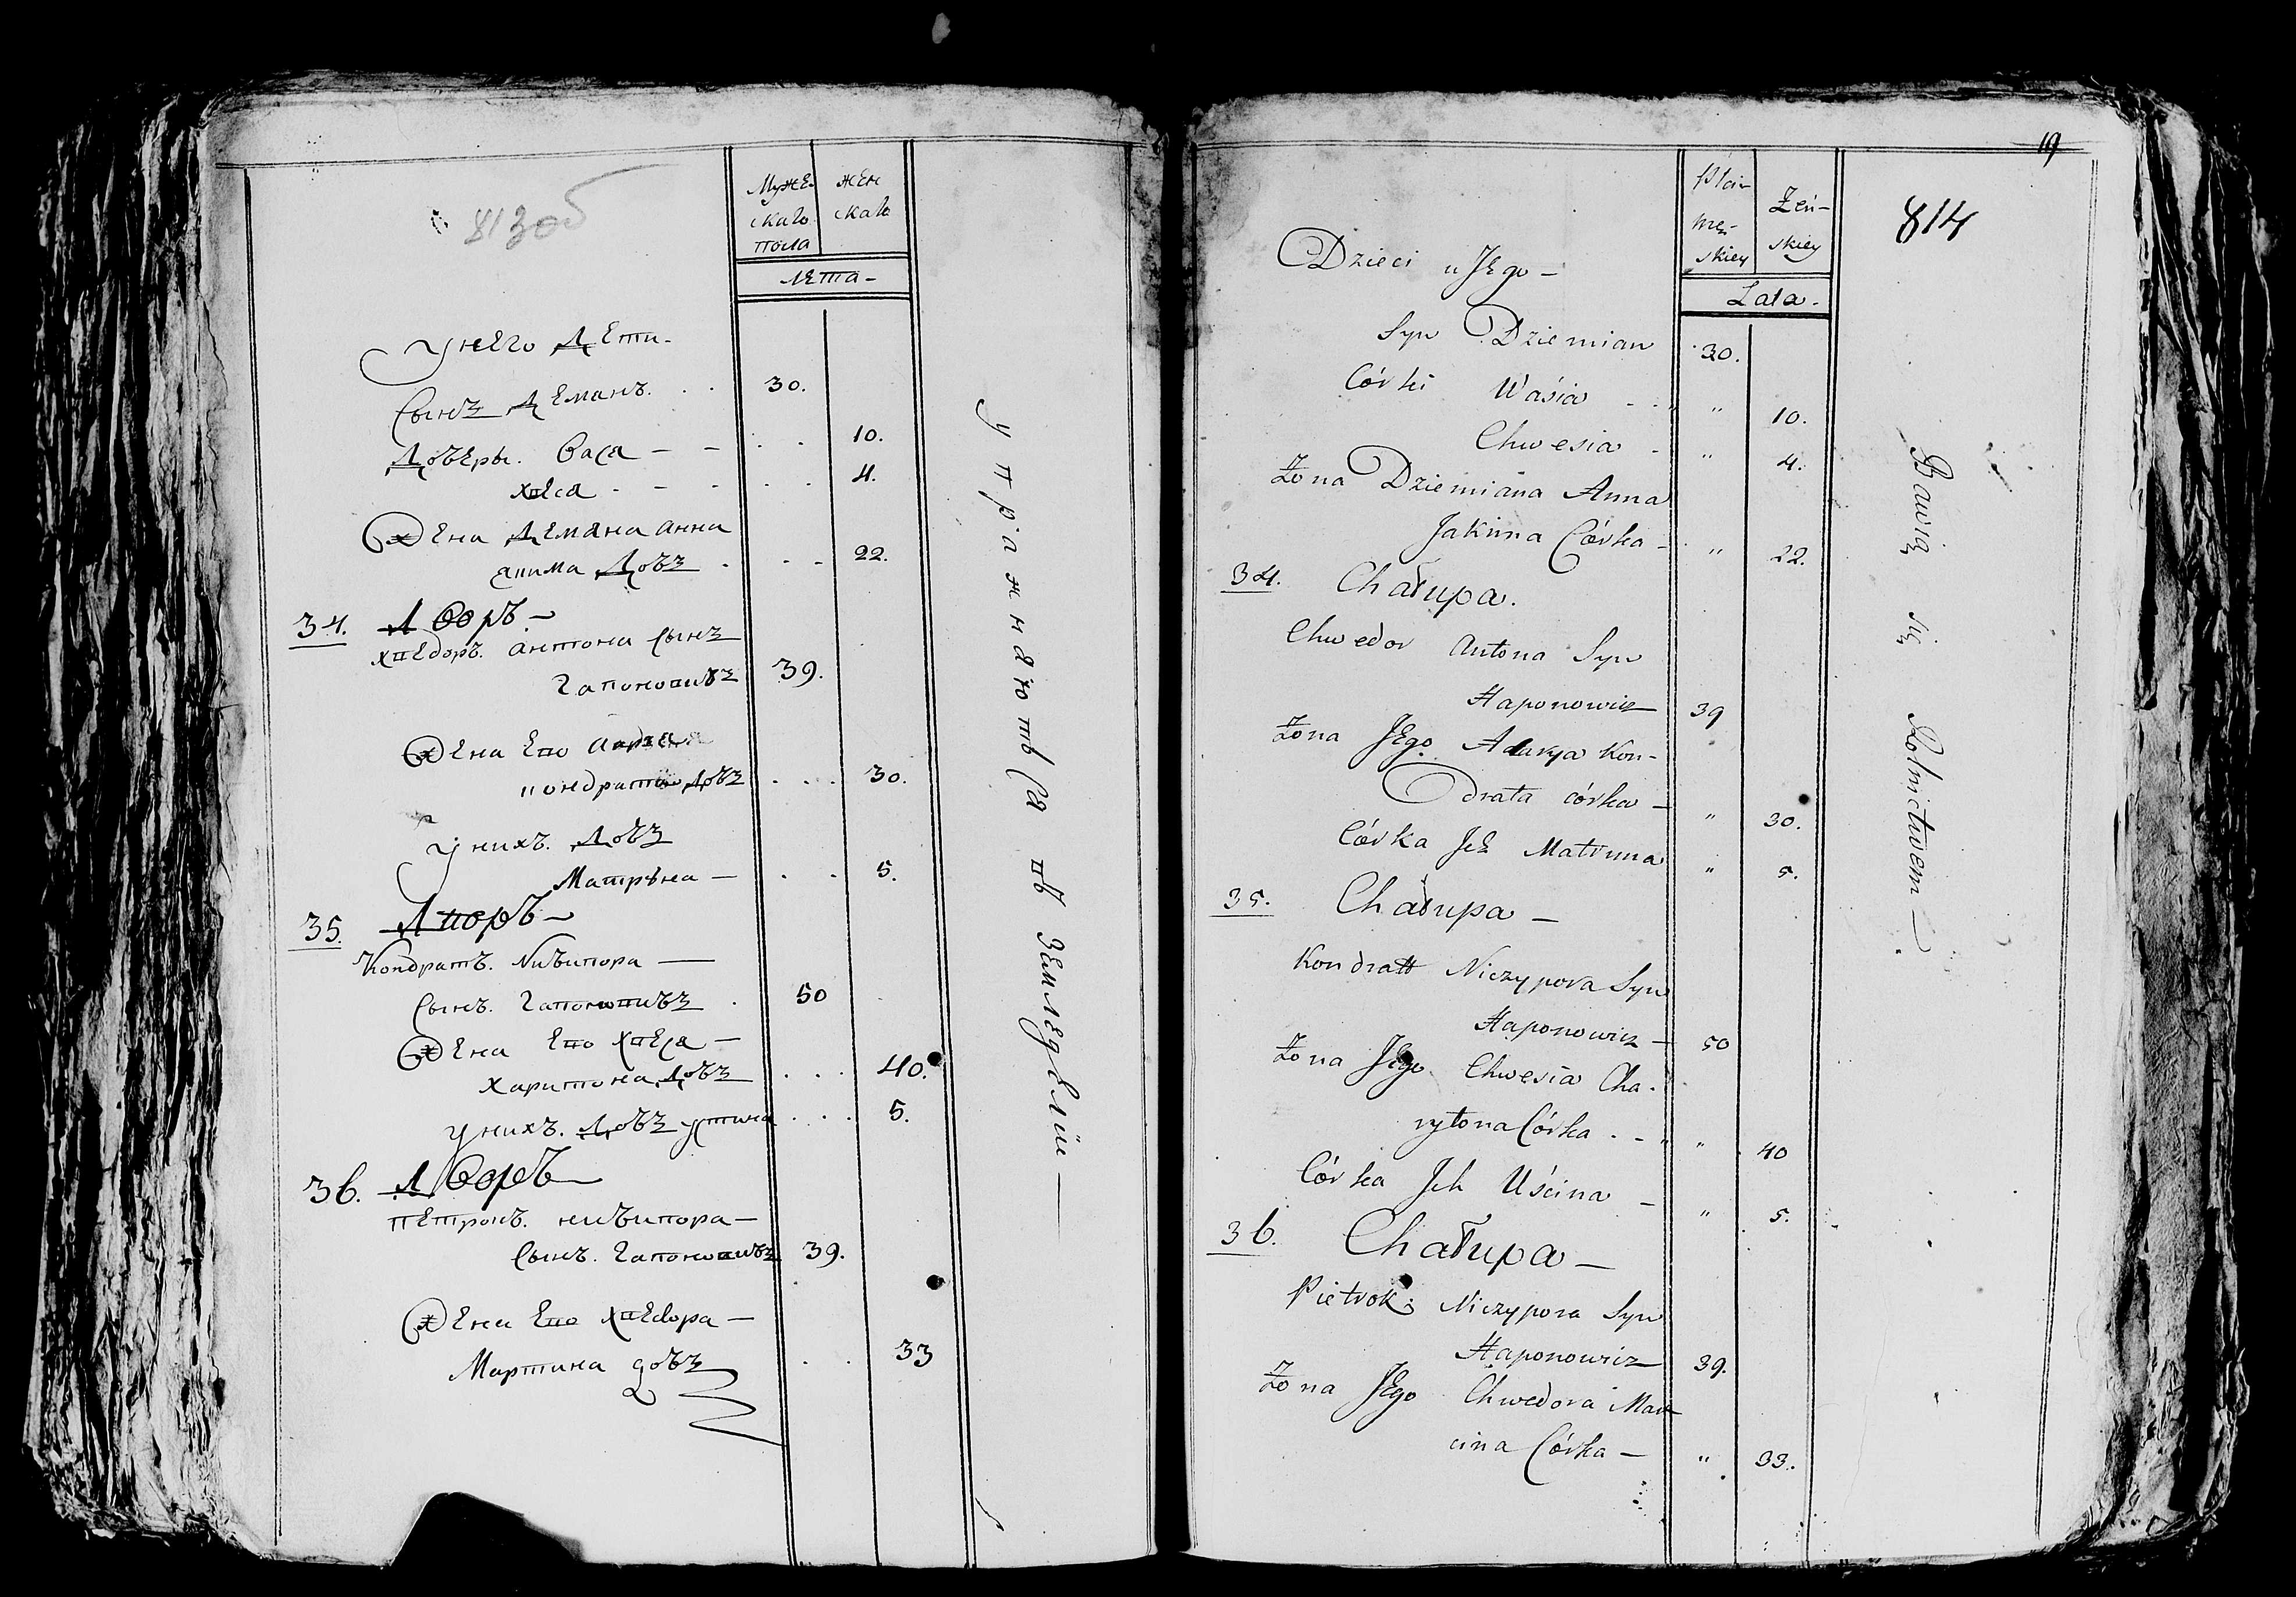 813об
Муже- жен
скаго скаго
пола
лета-
У него Дети-
Сынъ Деманъ. 30.
Дочеры. Вася - - 10.
Хвеся - - - 4.
Жена Демяна Анна
якима Дочь 22.
34. Дворъ-
Хведоръ. Антона Сынъ
Гапоновичъ 39.
Жена Его
кондрата Дочь 30.
У нихъ. Дочь
Матрына — 5.
35. Дворъ-
Кондратъ. Ничипора —
Сынъ. Гапоновичъ 50
Жена Его Хвеся —
Харитона Дочь 40.
У нихъ. Дочь Устина 5.
36. Дворъ
Петрокъ. ничипора —
Сынъ. Гапоновичъ 39.
Жена Его Хведора —
Мартина дочь 33
упражняются въ земледелии —
19
814
Płci Żeń-
mę- skiey
skiey
Lata.
Dzieci u Jego —
Syn Dziemian 30.
Córki Waśia " 10.
Chwesia - " 4.
Żona Dziemiana Anna
Jakima Córka - " 22.
34. Chałupa.
Chwedor Antona Syn
Haponowicz 39
Żona Jego Adarya Kon-
drata córka - " 30.
Córka Jch Matruna " 5.
35. Chałupa —
Kondratt Niczypora Syn
Haponowicz 50
Żona Jego Chwesia Cha-
rytona Córka " 40
Córka Jch Uścina - " 5.
36. Chałupa —
Pietrok: Niczypora Syn
Haponowicz 39.
Żona Jego Chwedora Mar
cina Córka — " 33.
Bawią się Rolnictwem —